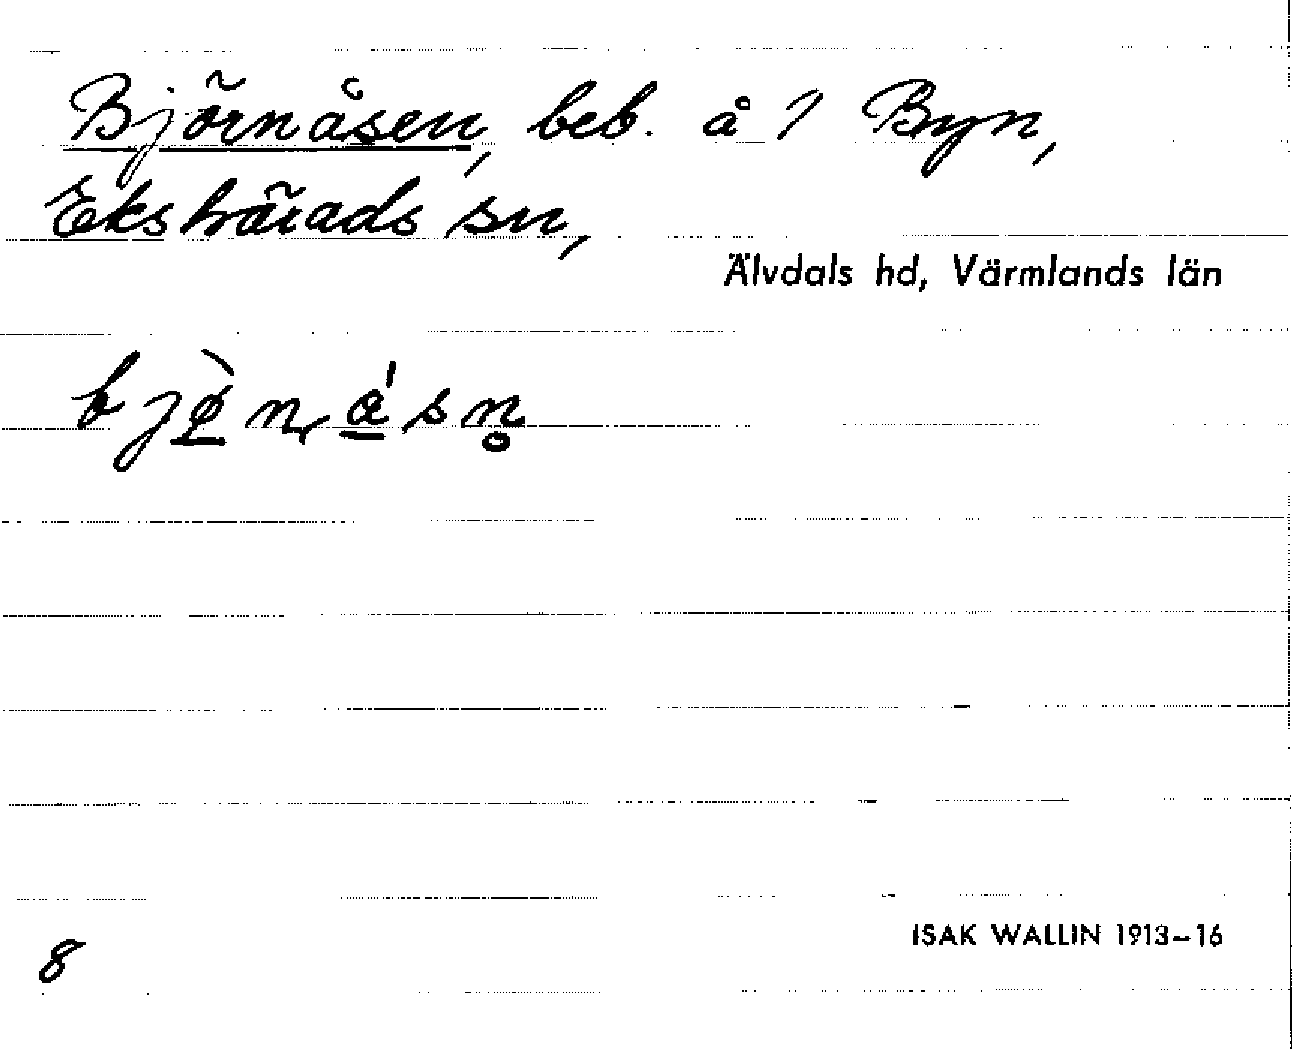 Björnåsen, beb. å 1 Byn,
Ekshärads sn,
Älvdals hd, Värmlands län
bjø̠̀n, a̠̍sn̥
8
ISAK WALLIN 1913–16